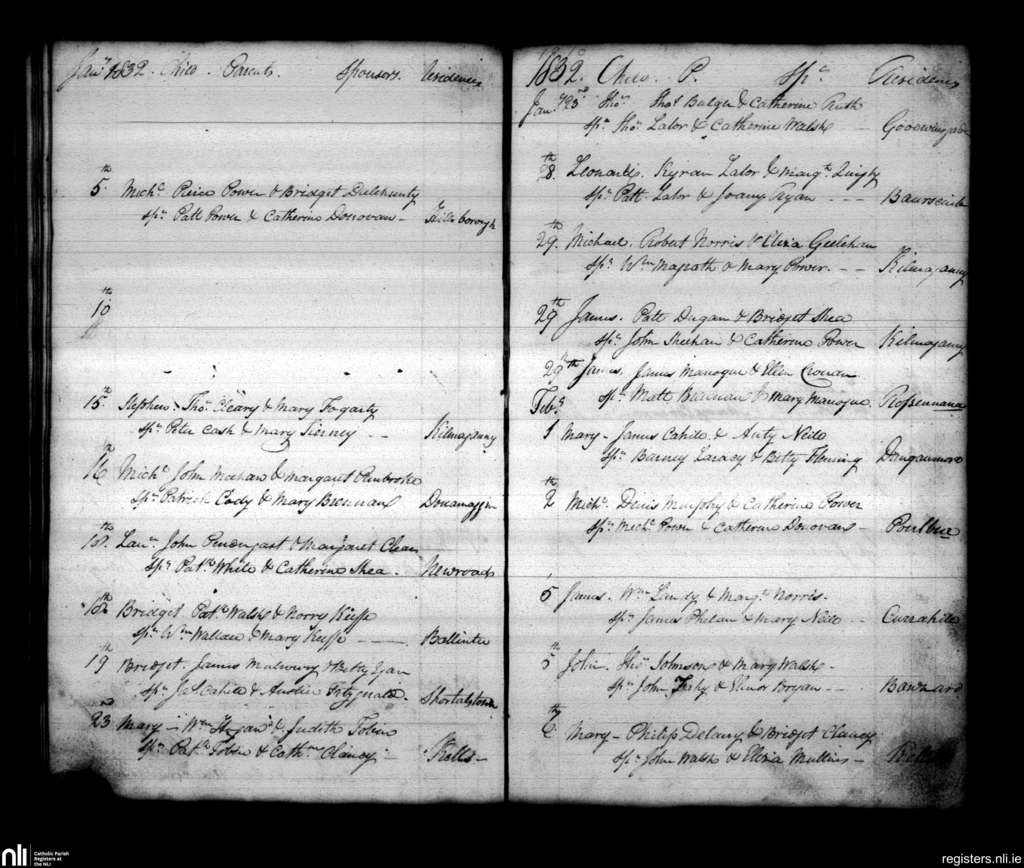 Jany 1832. Child. Parents. Sponsors. Residence
5th Michl Peirce Power & Bridget Delehunty
sps Patt Power & Catherine Donovan - Hillsborough
10th
15th Stephen. Thos Cleary & Mary Fogarty
sps Peter Cash & Mary Tierney - - Kilmaganny
16th Michl John Meehan & Margaret Pembroke
sps Patrick Cody & Mary Brennan Donamaggin
18th Laue John Pendergast & Margaret Clean
sps Patk White & Catherine Shea. Newroads
18th Bridget Patk Walsh & Norry Keeffe
sps Wm Wallace & Mary Keeffe Ballintee
19th Bridget. James & Betty Egan
sps Jas Cahill & Fitzgerald. Shortalstown
23rd Mary - Wm Hogan & Judith Tobin
sps Patk Tobin & Cathne Clancy - Kells -
1832. Child. P. Sps Residence
Jany 23rd Thos Thos Bulger & Catherine Ruth
sps Thos Lalor & Catherine Walsh
28th Kyran Lalor & Margt
sps Patt Lalor & Ryan - - -
29th Michael. Robert Norris & Eliza Geelehan
sps Wm Magrath & Mary Power. - - Kilmaganny
29th James. Patt Dugan & Bridget Shea
sps John Sheehan & Catherine Power Kilmaganny
29th James. James Manogue & Ellen Cronan
sps Matt Brennan & Mary Manogue Rossennarra
Feby
1 Mary - James Cahill & Anty Neill
sps Barney & Betty Fleming Dunganmore
2th Michl Denis Murphy & Catherine Power
sps Michl Power & Catherine Donovan -
5 James. Wm Landy & Margt Norris.
sps James Phelan & Mary Neill - - Currahill
5th John. Thos Johnson & Mary Walsh -
sps John & Elinor Bryan - - Bawnard
6th Mary - Philip Delany & Bridget Clancy
sps John Walsh & Eliza Mullins - Kells
nli
Catholic Parish
Registers at
the NLI
registers.nli.ie